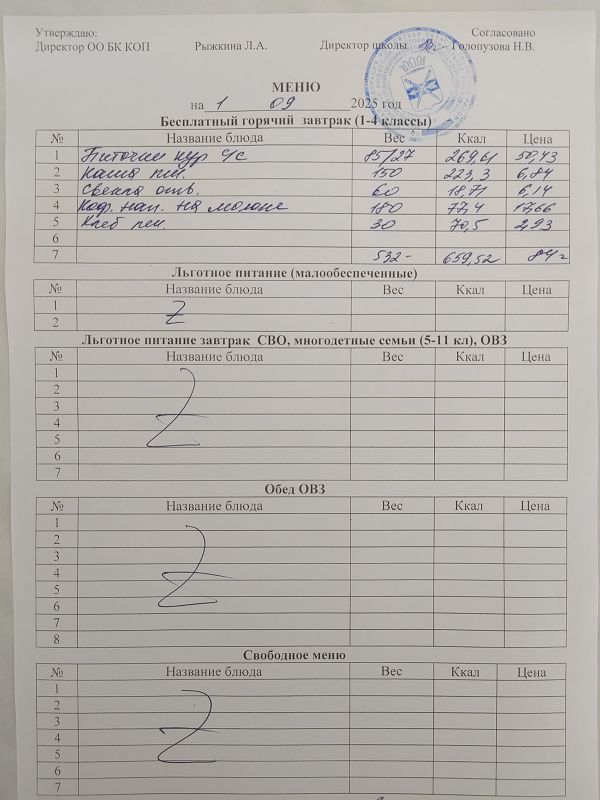 Утверждаю: Согласовано
Директор ОО БК КОП Рыжкина Л.А. Директор школы Голопузова Н.В.
МЕНЮ
на 1 09 2025 год
Бесплатный горячий завтрак (1-4 классы)
№ Название блюда Вес Ккал Цена
1 Биточки кур с/с 85/27 269,61 50,43
2 Каша пш. 150 223,3 6,84
3 Свекла отв. 60 18,71 6,14
4 Коф. нап. на молоке 180 77,4 17,66
5 Хлеб пш. 30 70,5 2,93
6
7 532- 659,52 84=
Льготное питание (малообеспеченные)
№ Название блюда Вес Ккал Цена
1
2
Льготное питание завтрак СВО, многодетные семьи (5-11 кл), ОВЗ
№ Название блюда Вес Ккал Цена
1
2
3
4
5
6
7
Обед ОВЗ
№ Название блюда Вес Ккал Цена
1
2
3
4
5
6
7
8
Свободное меню
№ Название блюда Вес Ккал Цена
1
2
3
4
5
6
7